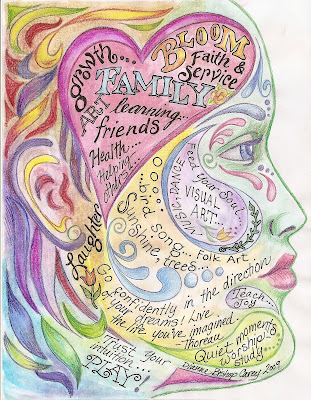 growth...
BLOOM
Faith &
Service
FAMILY
ART
learning...
friends
Health...
Helping
Others...
Laughter
Feed your Soul...
MUSIC, DANCE
VISUAL
ART...
bird song...
Sunshine, trees...
Folk Art
Go
confidently in the direction
of your dreams! Live
the life you've imagined.
Thoreau
Teach...
Joy
Trust Your
intuition...
PLAY!
Quiet moments
worship...
study...
Dianne
Carey 2009